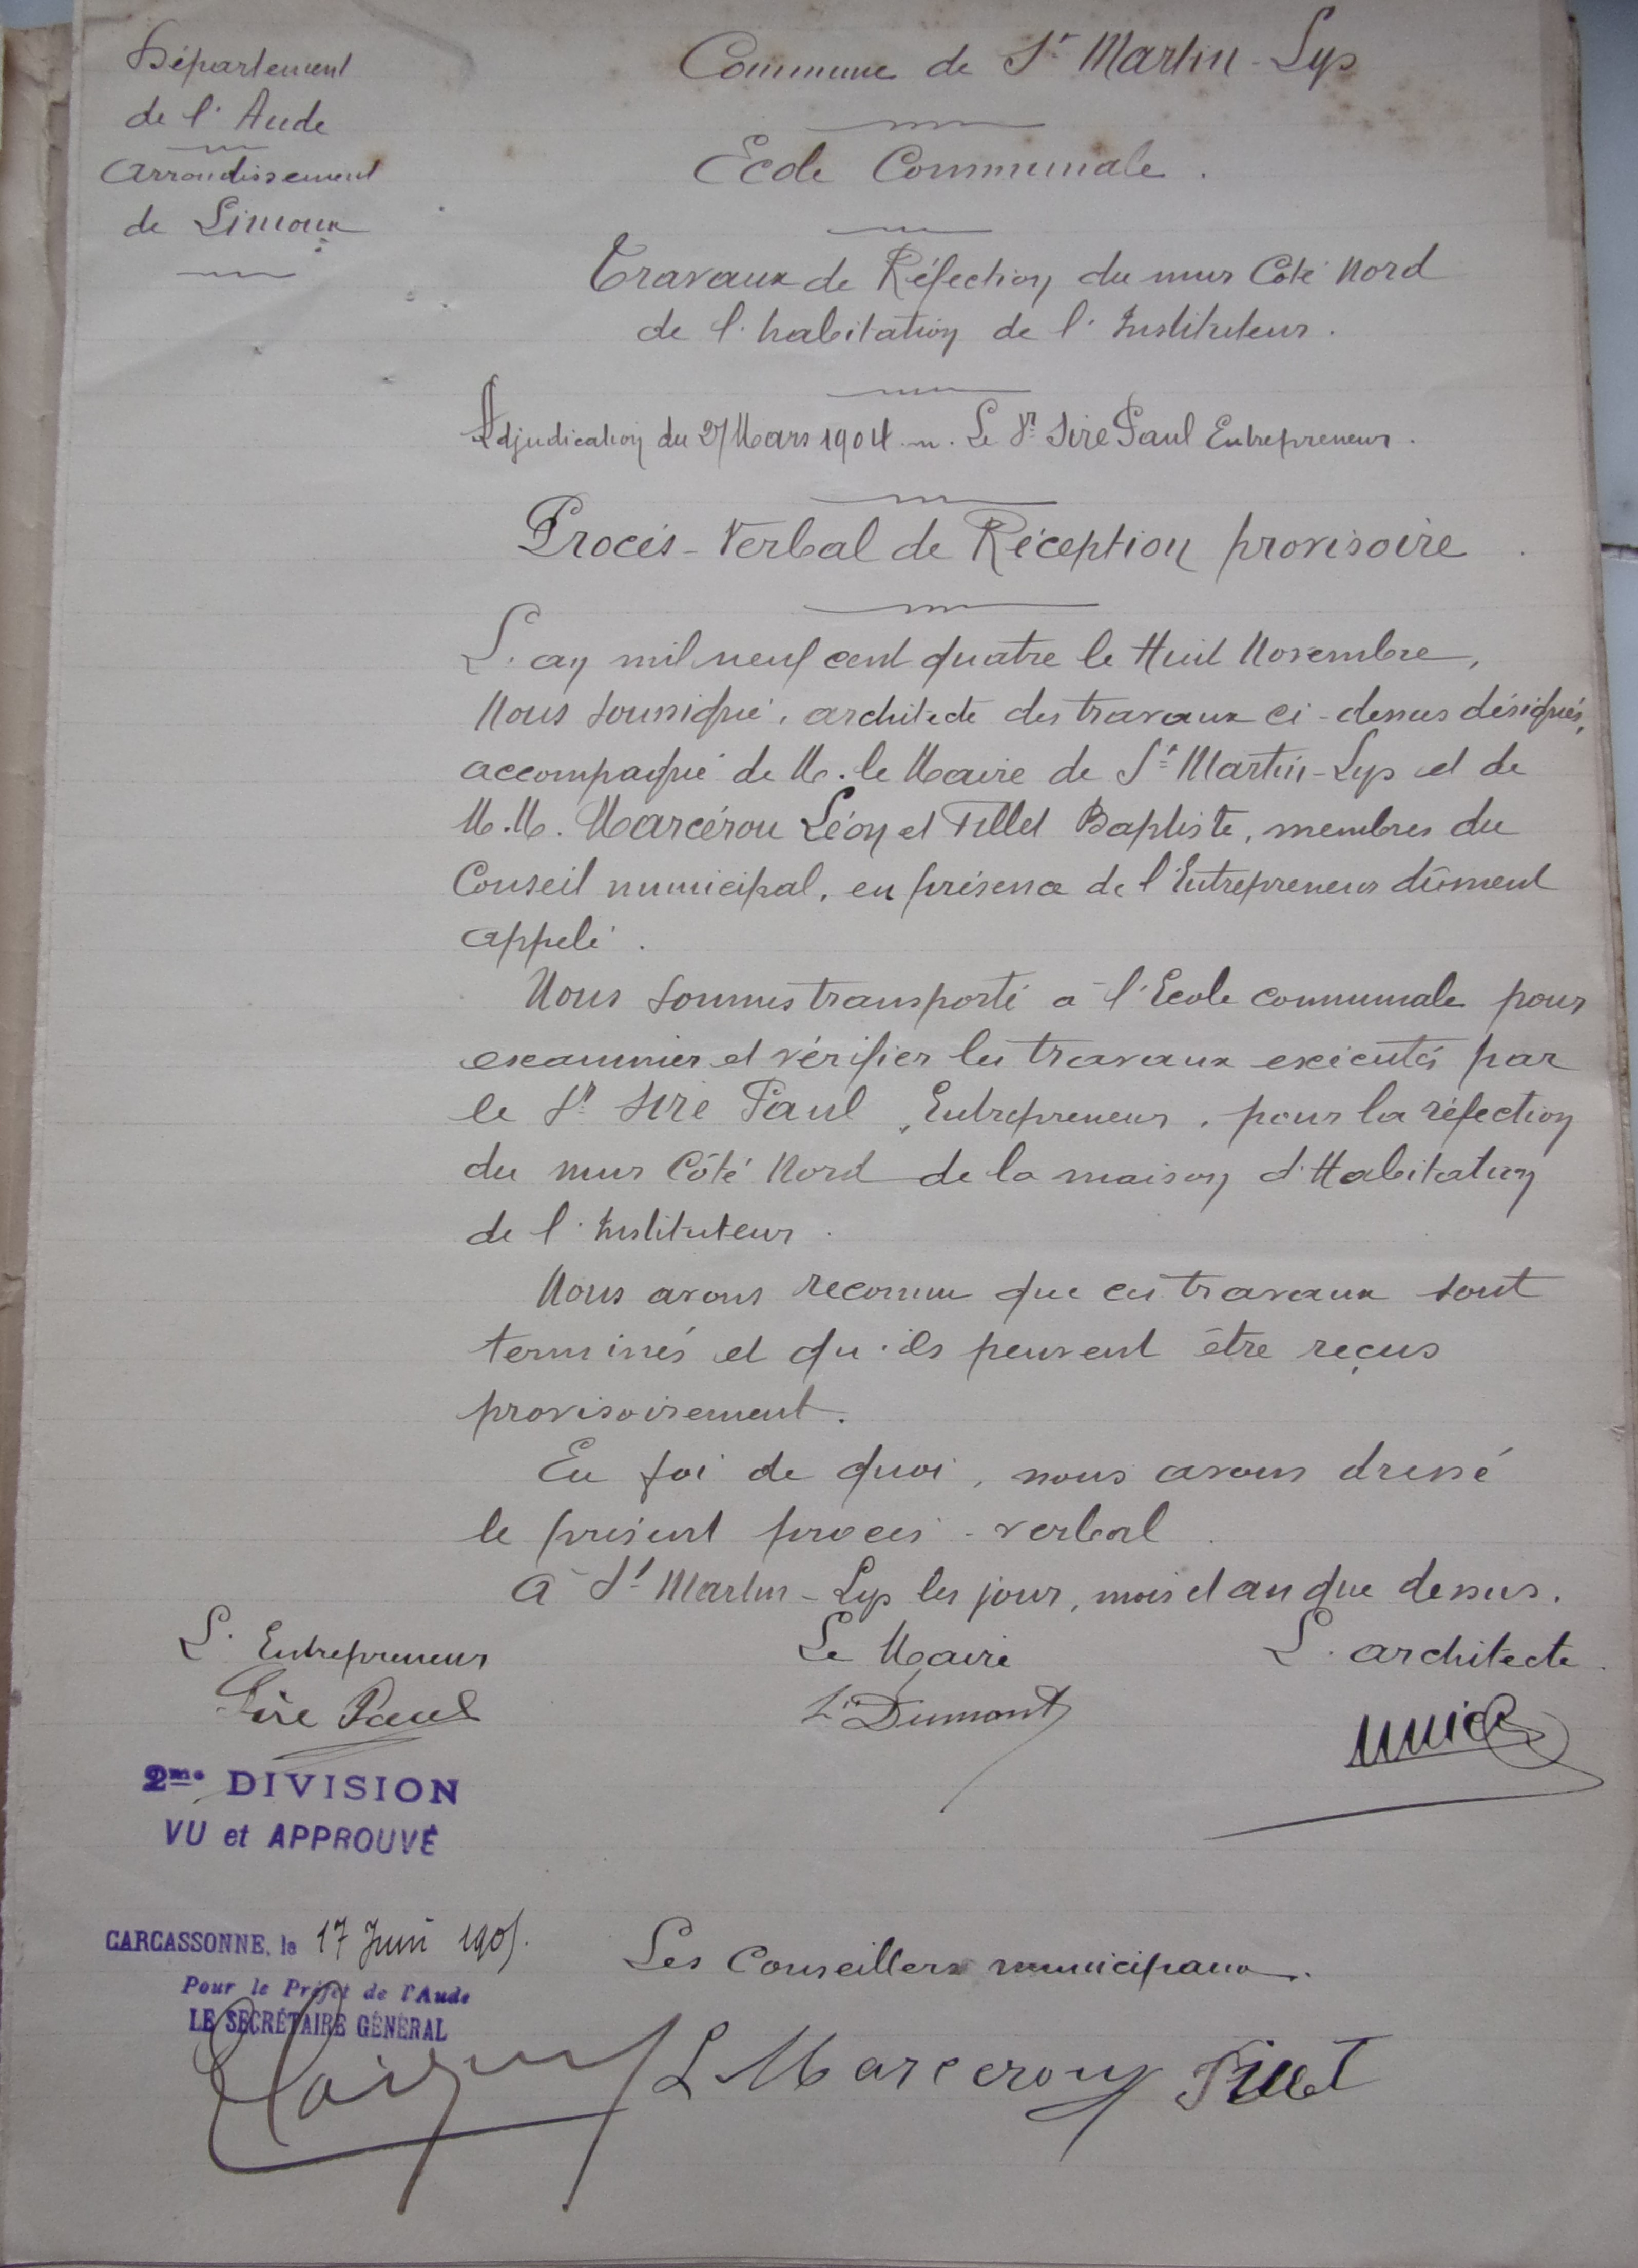 Département
de l'Aude
Arrondissement
de Limoux
Commune de St Martin-Lys
Ecole Communale.
Travaux de Réfection du mur Coté Nord
de l'habitation de l'Instituteur.
Adjudication du 27 Mars 1904 . Le Sr Sire Paul Entrepreneur.
Procès-Verbal de Réception provisoire
L'an mil neuf cent quatre le Huit Novembre,
Nous soussigné, architecte des travaux ci-dessus désignés,
accompagné de M. le Maire de St Martin-Lys et de
M.M. Marcérou Léon et Tillet Baptiste, membres du
Conseil municipal, en présence de l'Entrepreneur dûment
appelé.
Nous sommes transporté à l'Ecole communale pour
examiner et vérifier les travaux exécutés par
le Sr Sire Paul, Entrepreneur, pour la réfection
du mur Côté Nord de la maison d'Habitation
de l'Instituteur.
Nous avons reconnu que ces travaux sont
terminés et qu'ils peuvent être reçus
provisoirement.
En foi de quoi, nous avons dressé
le présent procès-verbal
à St Martin-Lys les jour, mois et an que dessus.
L'Entrepreneur
Sire Paul
Le Maire
Dumont
L'architecte.
2me DIVISION
VU et APPROUVÉ
CARCASSONNE, le 17 Juin 1905.
Pour le Préfet de l'Aude
LE SECRÉTAIRE GÉNÉRAL
Les Conseillers municipaux.
L Marcerou Tillet